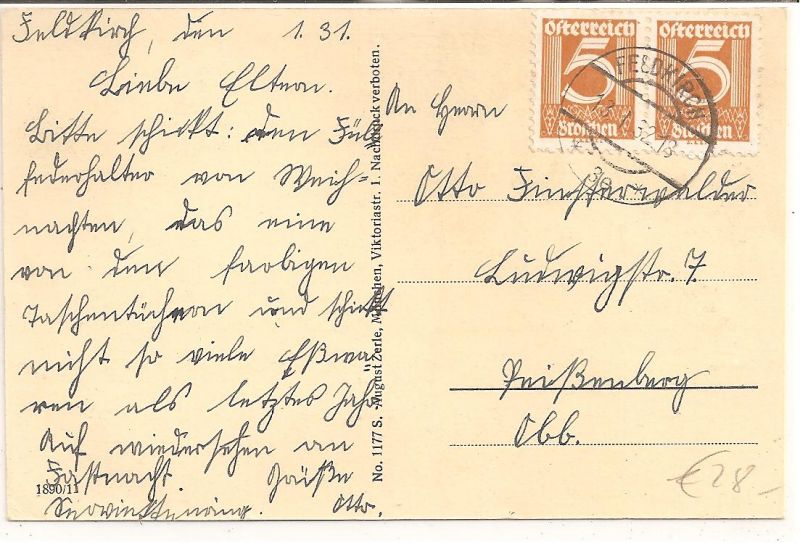 Feldkirch, den 1.31.
Liebe Eltern.
Bitte schickt: den Füll
federhalter von Weih-
nachten, das eine
von den farbigen
Taschentüchern und schickt
nicht so viele Eßwa
ren als letztes Jahr
Auf wiedersehen an
Fastnacht. Grüße
Otto.
1890/11
No. 1177 S. August Zerle, München, Viktoriastr. 1. Nachdruck verboten.
Österreich Österreich
5 5
Groschen Groschen
FELDKIRCH
An Herrn
Otto Finsterwalder
Ludwigstr. 7.
Peißenberg
Obb.
€28-